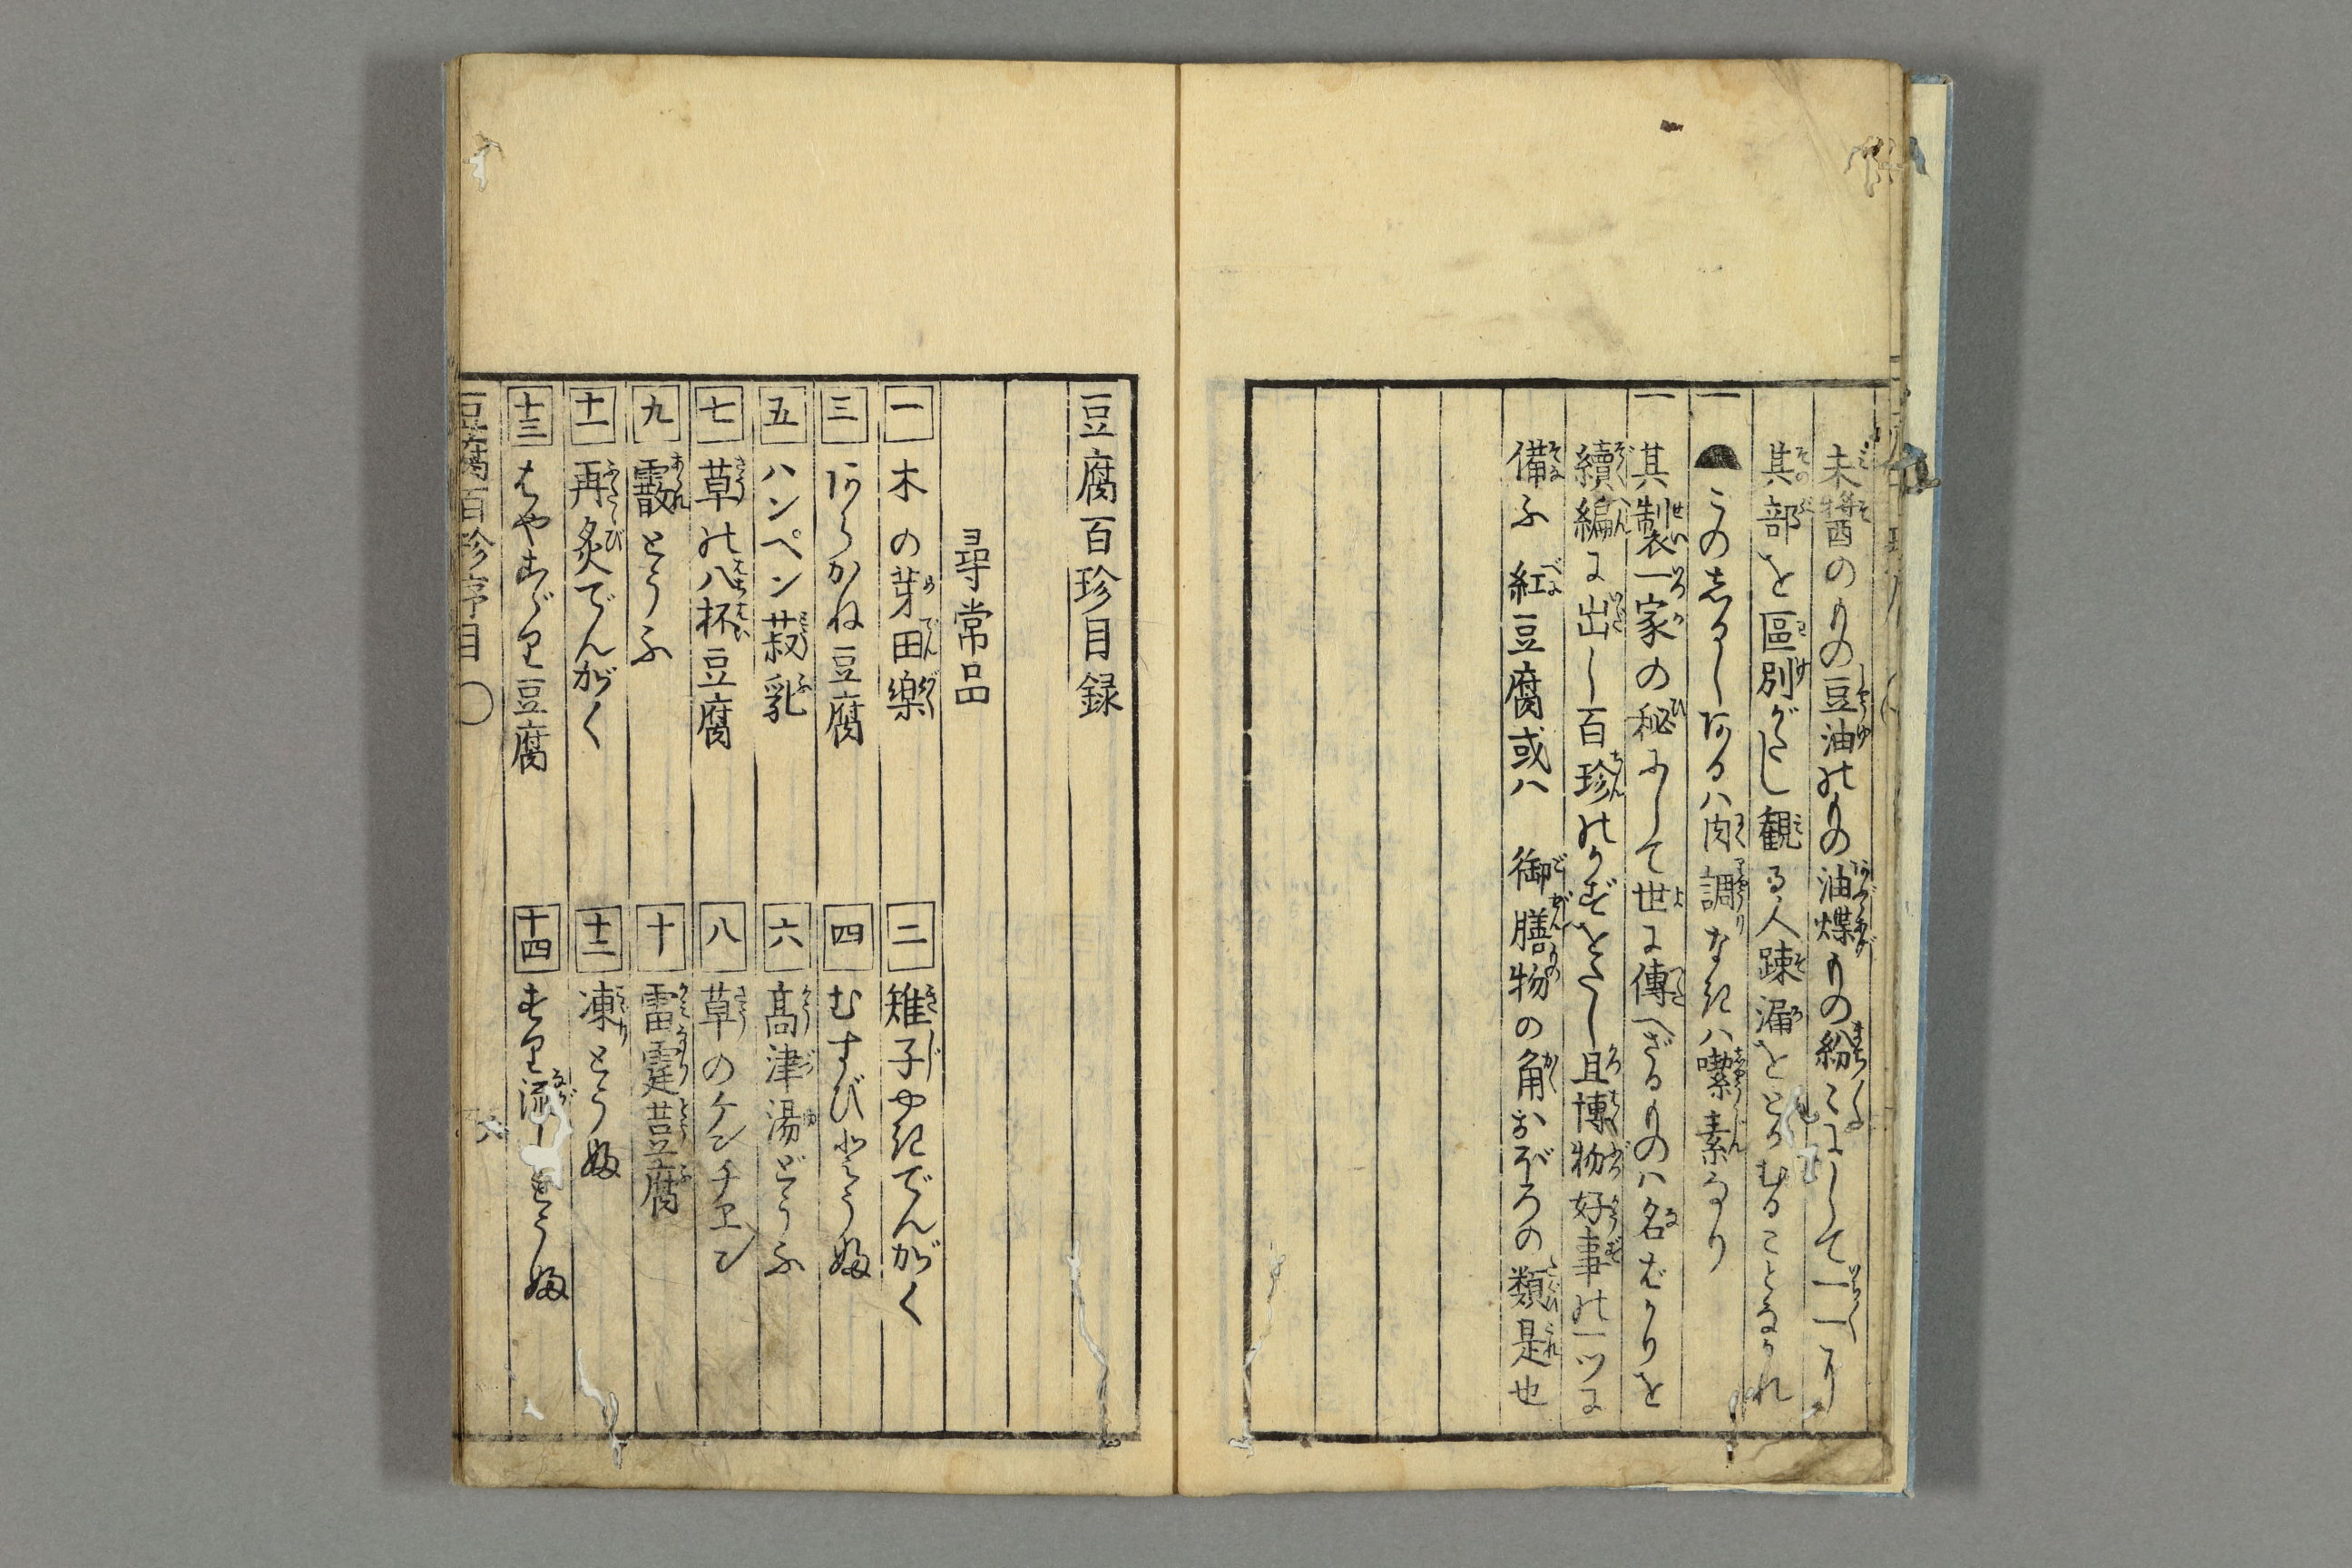 未醤のもの豆油のもの油煤もの紛〻にして一一に
其部を區別がたし観る人踈漏をとがむることなかれ
一 ◗このしるしあるハ肉調なきハ潔素なり
一 其製一家の秘にして世に傳へざるものハ名ばかりを
續編に出し百珍のかずをたし且博物好事の一ツに
備ふ 紅豆腐或ハ 御膳物の角おぼろの類是也
豆腐百珍目録
尋常品
一 木の芽田樂
二 雉子やきでんがく
三 あらかね豆腐
四 むすびとうふ
五 ハンペン菽乳
六 髙津湯どうふ
七 草の八杯豆腐
八 草のケンチヱン
九 霰とうふ
十 雷霆荳腐
十一 再炙でんがく
十二 凍とうふ
十三 はやすゞり豆腐
十四 すり流しとうふ
豆腐百珍序目 〇 六